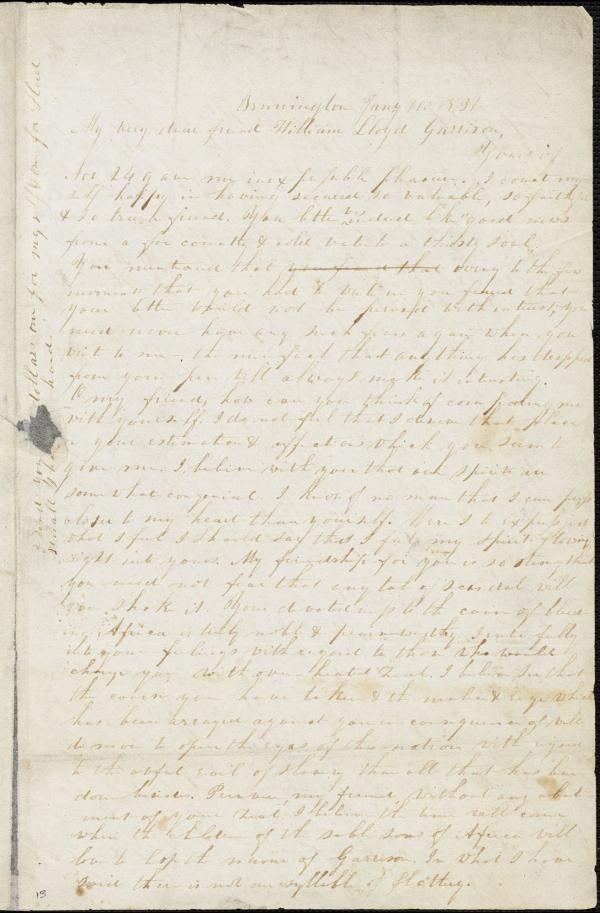 Bennington Jany 11. 1831.
My very dear friend William Lloyd Garrison,
Yours of
Nov 24 gave me inexpressible pleasure. I count my
self happy in having secured so valuable, so faithful
& so true a friend. Your letter was indeed like "good news
from a far country & cold water to a thirsty soul.
You mentioned that you feared that owing to the few
moments that you had to write in you feared that
your letter would not be perused with interest; you
need never have any such fears again when you
write to me—the mere fact that anything has dropped
from your pen will always make it interesting.
O my friend, how can you think of comparing me
with yourself. I do not feel that I deserve that place
in your estimation & affections which you seem to
give me. I believe with you that our spirits are
somewhat congenial. I know of no man that I can press
closer to my heart than yourself. Were I to express just
what I feel I should say that I felt my spirit flowing
right into yours. My friendship for you is so strong that
you need not fear that any lot of scandal will
ever shake it. Your devotedness to the cause of bleed
ing Africa is truly noble & praiseworthy. I enter fully
into your feelings with regard to those who would
charge you with over heated zeal. I believe Sir that
the course you have taken & the malice & rage which
has been arrayed against you in consequence of will
do more to open the eyes of this nation with regard
to the awful evil of slavery than all that has been
done beside. Persevere, my friend, without any abate
ment of your zeal. I believe the time will come
when the children of the sable sons of Africa will
love to lisp the name of Garrison. In what I have
said there is not one syllable of flattery.
I send you dollars one for myself & one for
hand.
13